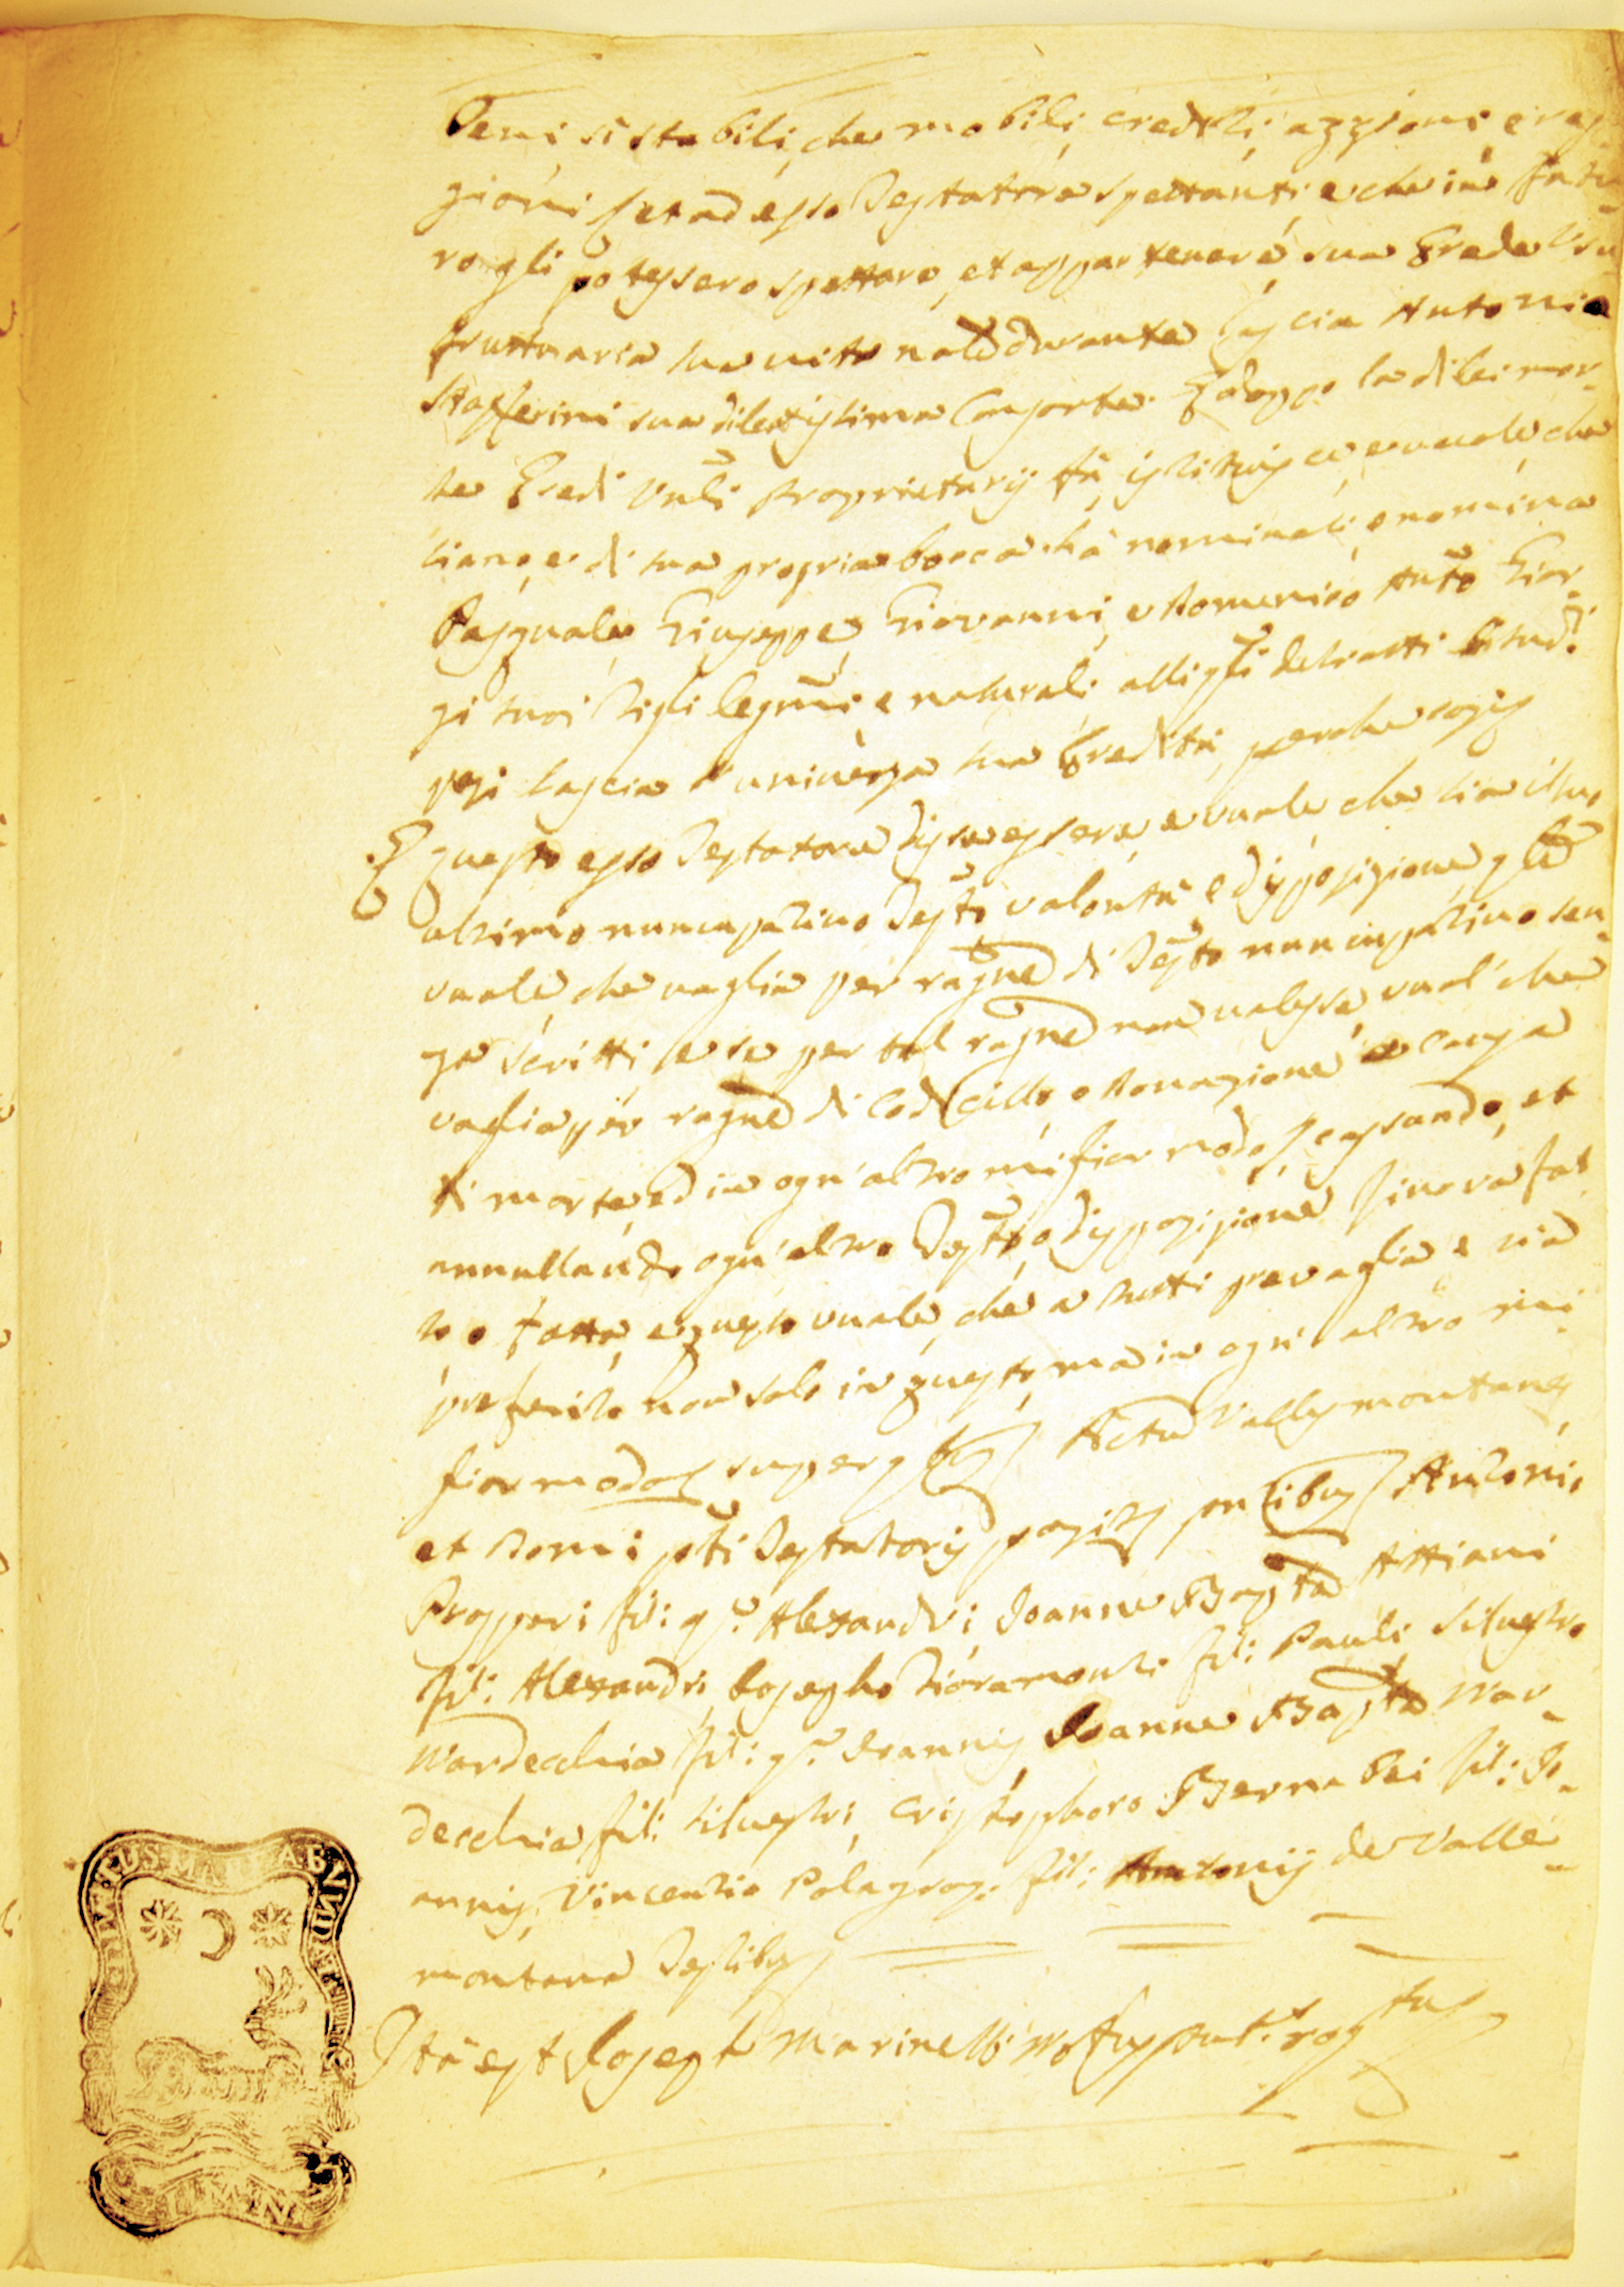 Beni si stabili, che mobili, crediti, azzioni, e rag
gioni et ad esso Testatore spettanti e che in futu
ro gli potessero spettare, et appartenere sua Erede Usu
fruttuaria sua vita nãle durante lascia Antonia
sua dilettissima Consorte. E doppo la di lei mor
te Eredi Vnĩli Proprietarij fà, istituisce, e vuole che
siano, e di sua propria bocca hà nominati, e nomina
Pasquale, Giuseppe, Giovanni, e Domenico Antõ Gior
gi suoi Figli legmĩ e naturali alli qũli
lascia l'universa sua Eredità, perche cosi
E questo esso Testatore disse essere e vuole che sia il suo
ultimo nuncupativo Testõ volontà e disposizione
vuole, che vaglia per ragne di Testõ nuncupativo sen
za scritti, e se per tal ragne non valesse vuol' che
vaglia per ragne di Codicillo, o Donazione a causa
di morte, ed in ogn'altro miglior modo cassando, et
annullando ogn'altro Testõ, o disposizione sinora fat
to o fatta, e questo vuole, che a tutti prevaglia, e sia
preferito non solo in questo, ma in ogn' altro mi
glior modo super Actũ Vallismontanes
et Domi ptĩ Testatoris positẽ pntibus Antonio
Prosperi fil: qm Alexandri, Joanne Bapta Attiani
fil: Alexandri, Josepho Fioramonti fil: Pauli Silvestro
Nardecchia fil: qm Joannis, Joanne Bapta Nar
decchia fil: Silvestri, Cristophoro Bernabei fil: Jo
annis, Vincentio Polagrop. fil: Antonij de Valle
montana Testibus
Ita est Joseph Marinelli Notus rogtus